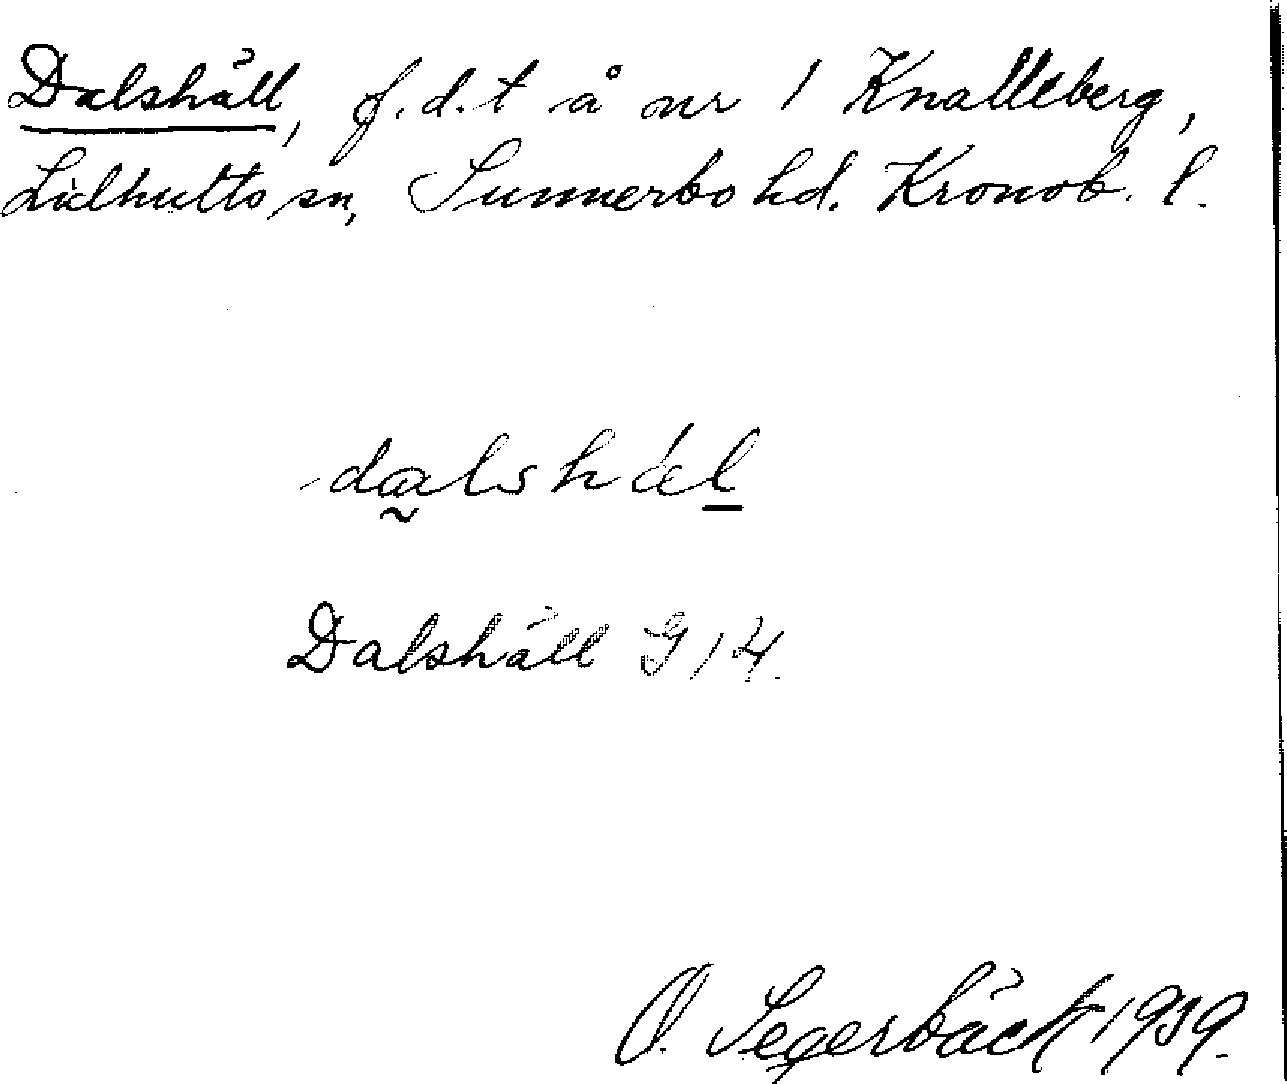 Dalshäll, f.d.t å nr 1 Knalleberg,
Lidhults sn, Sunnerbo hd. Kronob. l.
dalshæl
Dalshäll G 14.
O. Segerbäck 1939.